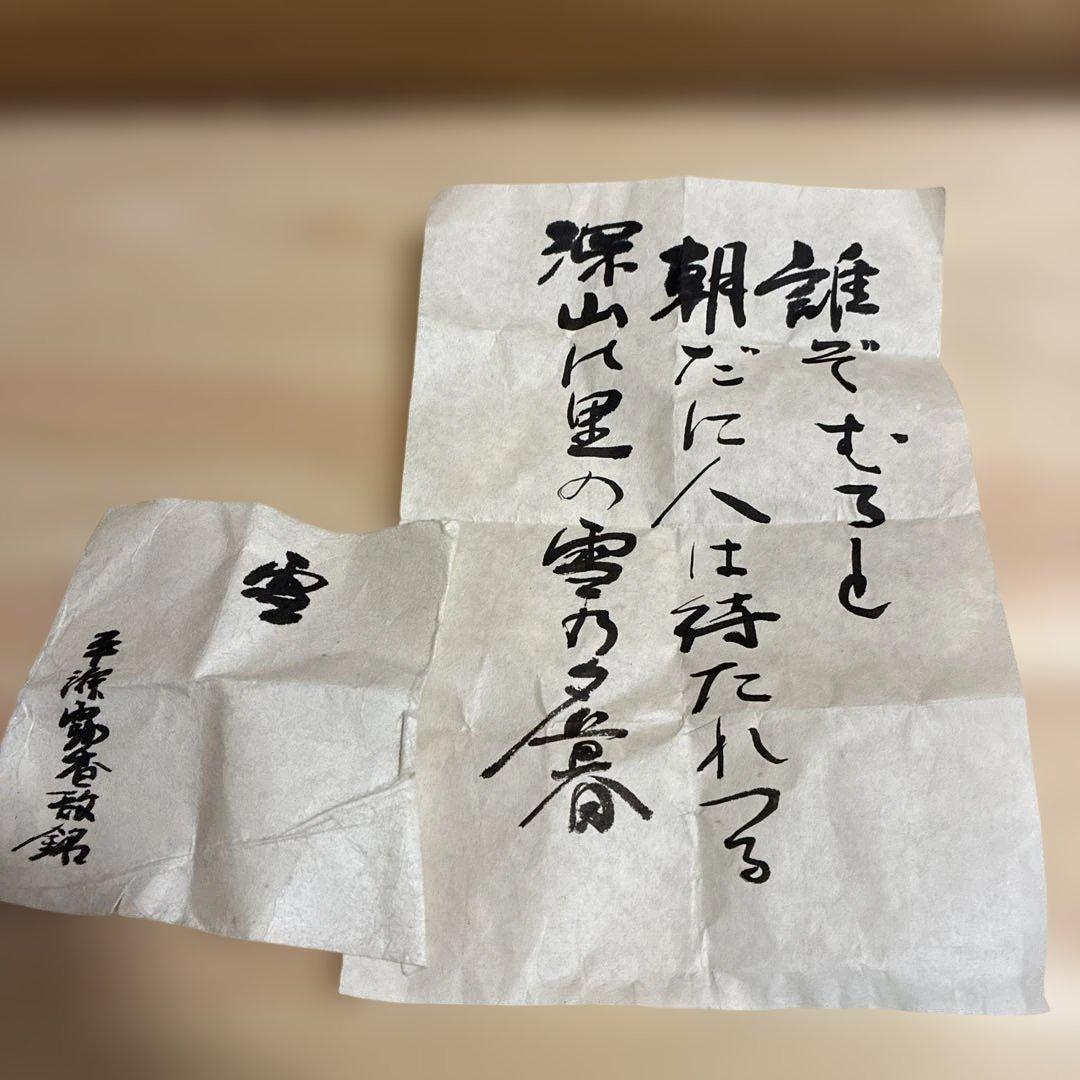 誰ぞむると
朝だに人は待たれつる
深山の里の雪乃夕暮
雪
香 銘